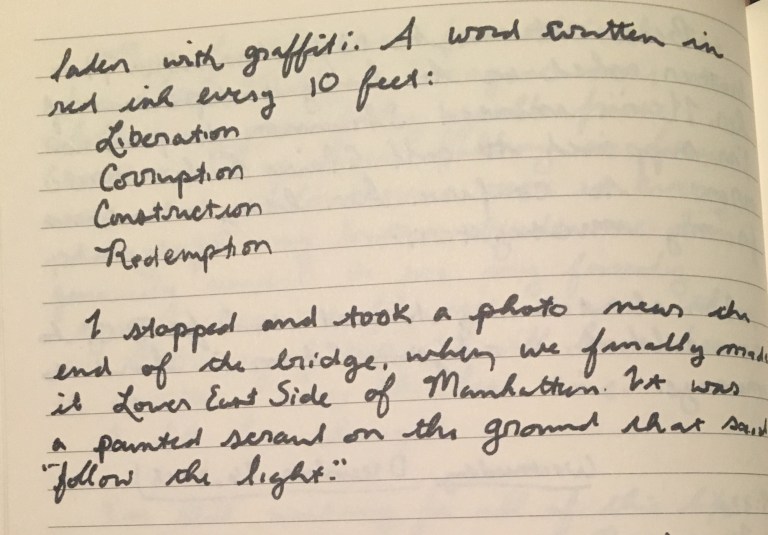 laden with graffiti. A word written in
red ink every 10 feet:
Liberation
Corruption
Construction
Redemption
I stopped and took a photo near the
end of the bridge, when we finally made
it Lower East Side of Manhattan. It was
a painted scrawl on the ground that said
"follow the light."